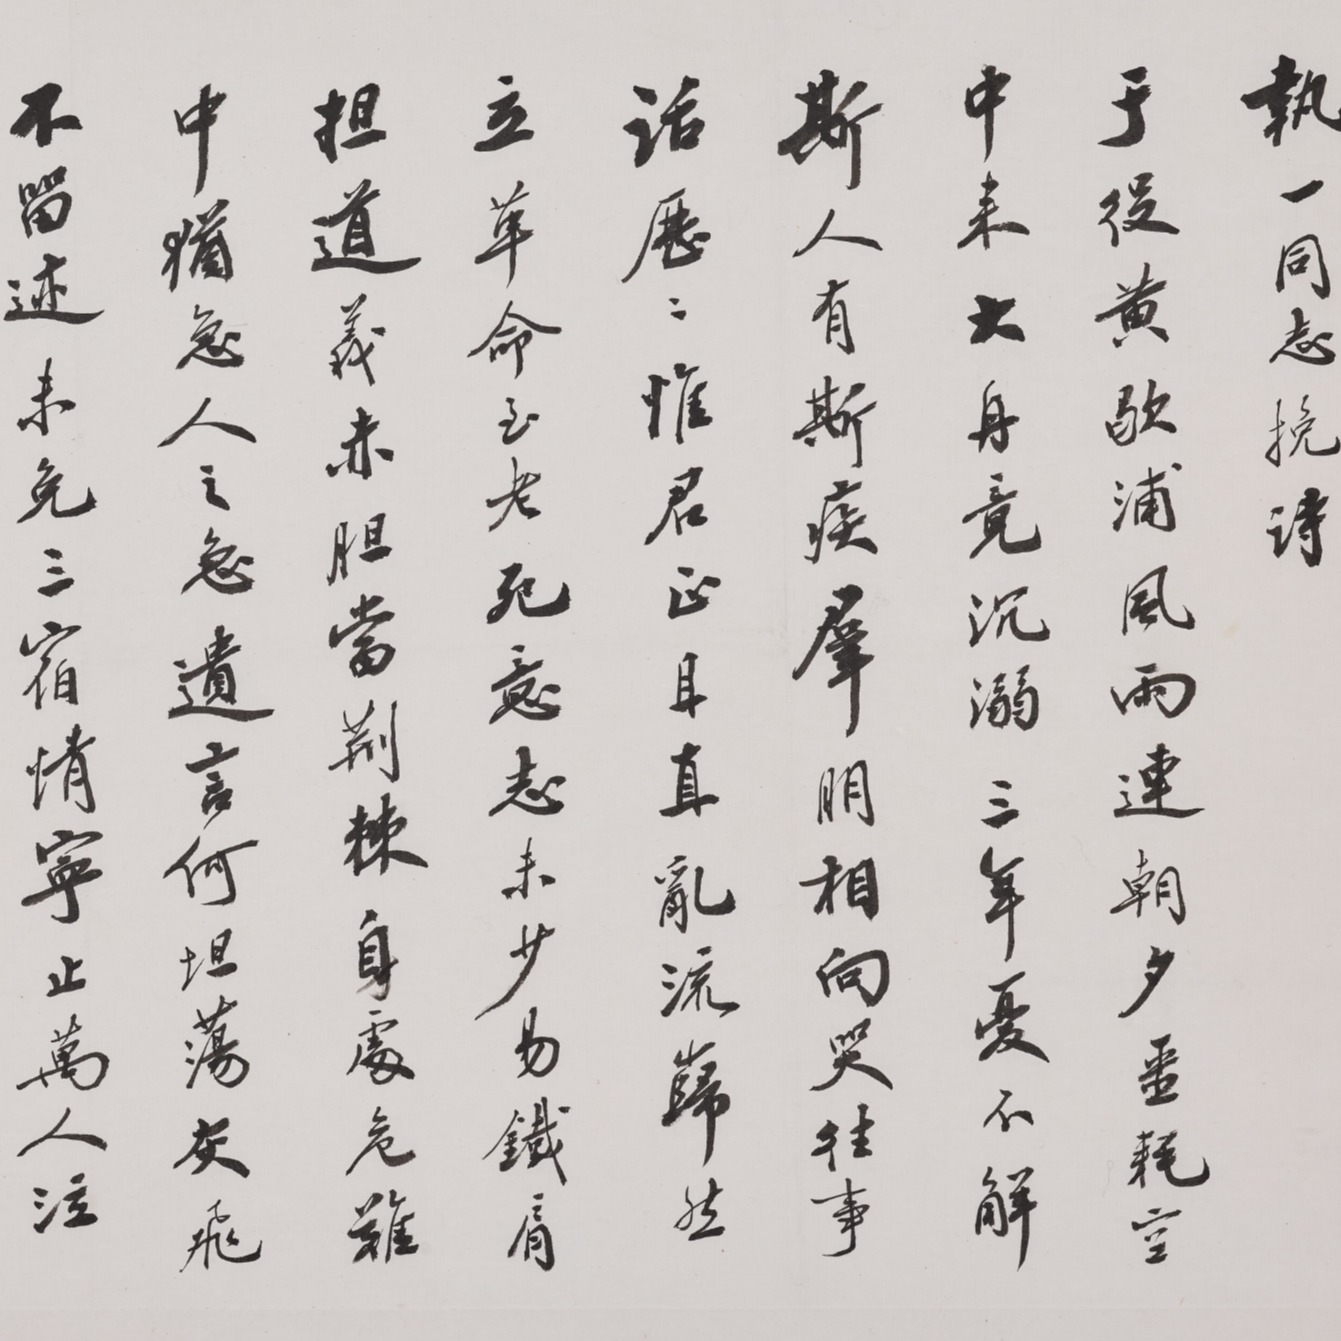 執一同志挽诗
于役黄歇浦風雨連朝夕噩耗空
中来大舟竟沉溺三年憂不解
斯人有斯疾羣朋相向哭往事
话歷々惟君正且直亂流巋然
立革命至老死意志未少易鐵肩
担道義赤胆當荆棘身處危難
中猶急人之急遺言何坦蕩灰飛
不留迹未免三宿情寧止萬人泣